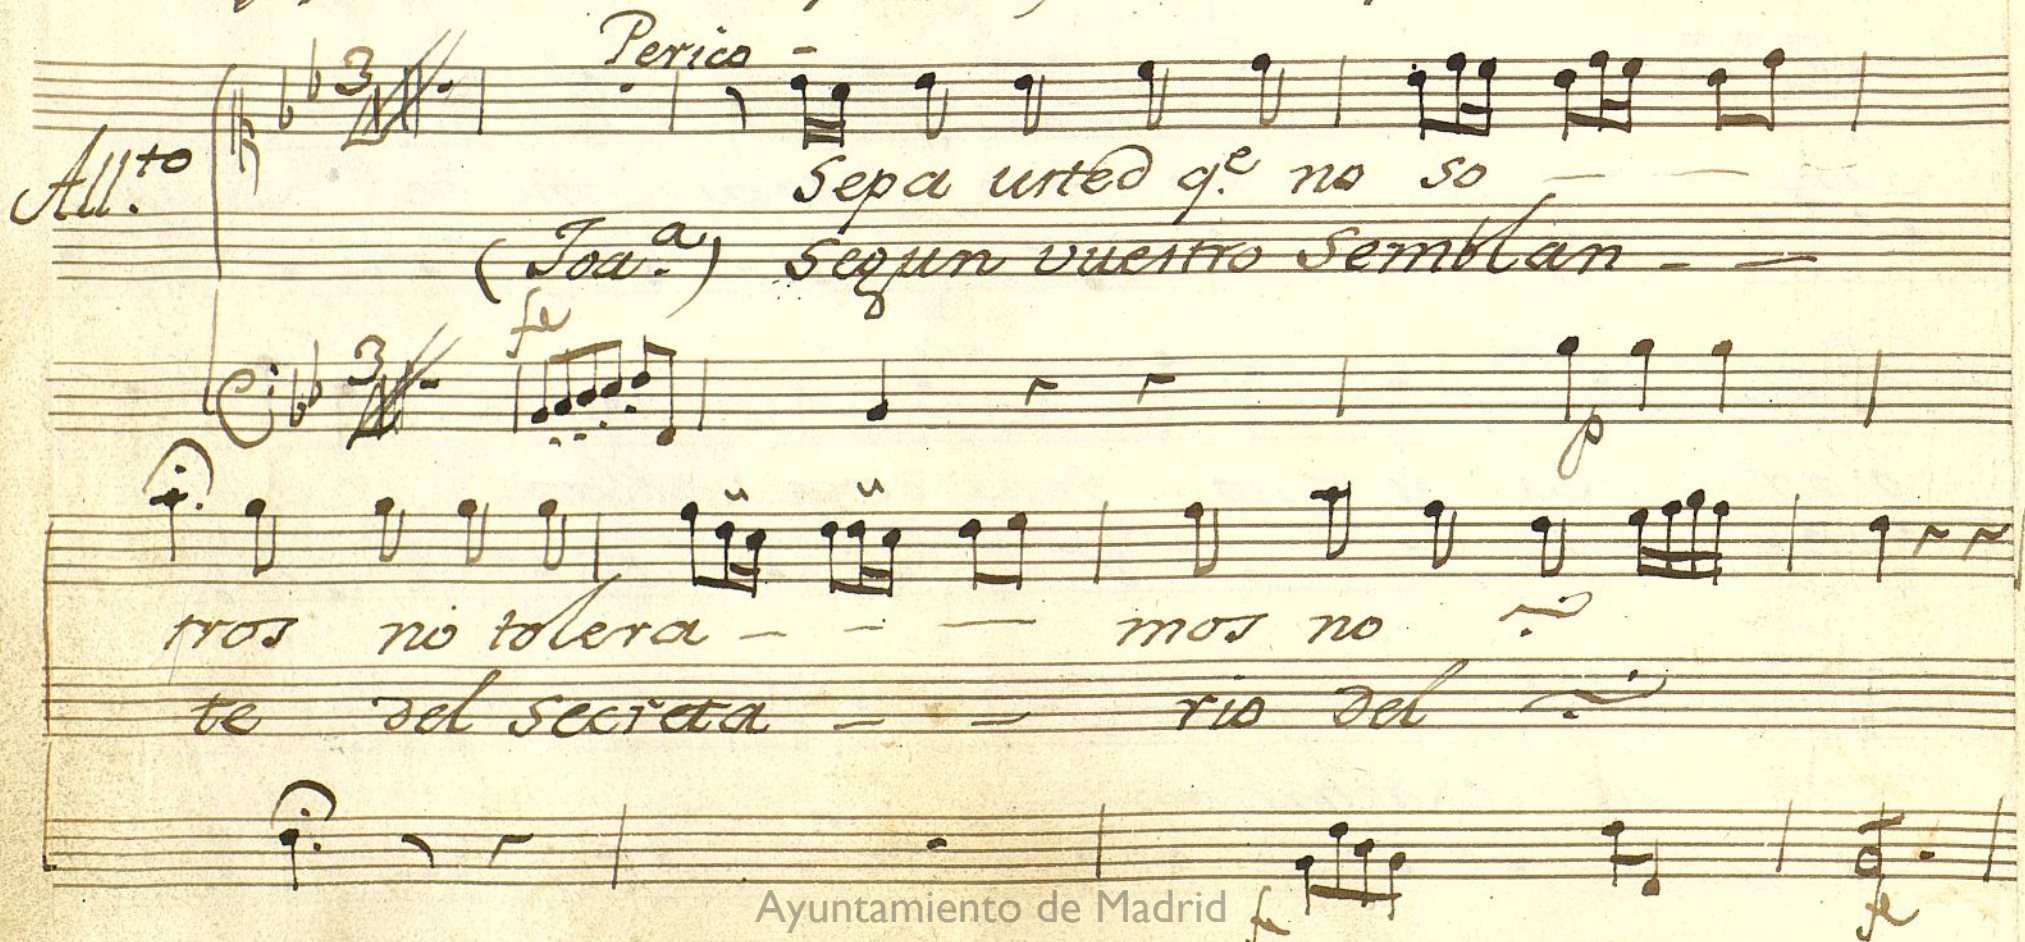 Perico -
3
Sepa usted q.e no so - - -
All.to
(Joa.a) segun vuestro Semblan - -
fe
3
p
tros no tolera - - - mos no
te del secreta - - rio del
Ayuntamiento de Madrid
fe fe